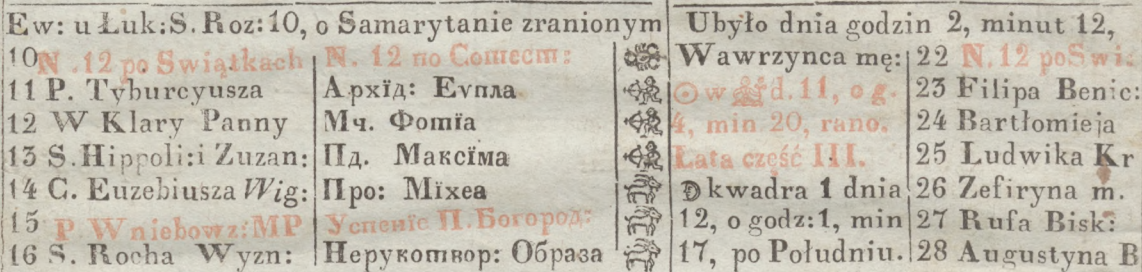 Ew: u Łuk: S. Roz: 10, o Samarytanie zranionym | Ubyło dnia godzin 2, minut 12,
10 N. 12 po Swiątkach | N. 12 по Сошест: | Wawrzynca mę: | 22 N. 12 po Swi:
11 P. Tyburcyusza | Архїд: Еѵпла | ☉ w d. 11, o g. | 23 Filipa Benic:
12 W Klary Panny | Мч. Фотїа | 4, min 20, rano. | 24 Bartłomieja
13 S. Hippoli: i Zuzan: | Пд. Максїма | Lata część III. | 25 Ludwika Kr
14 C. Euzebiusza Wig: | Про: Мїхеа | ☽ kwadra 1 dnia | 26 Zefiryna m.
15 P. Wniebowz: MP | Успенїе П. Богород: | 12, o godz: 1, min | 27 Rufa Bisk:
16 S. Rocha Wyzn: | Нерукотвор: Образа | 17, po Południu. | 28 Augustyna B